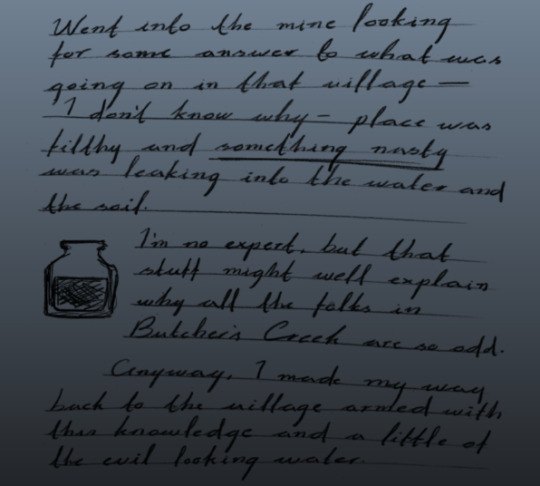 Went into the mine looking
for some answer to what was
going on in that village —
I don't know why - place was
filthy and something nasty
was leaking into the water and
the soil.
I'm no expert, but that
stuff might well explain
why all the folks in
Butcher's Creek are so odd.
Anyway, I made my way
back to the village armed with
this knowledge and a little of
the evil looking water.